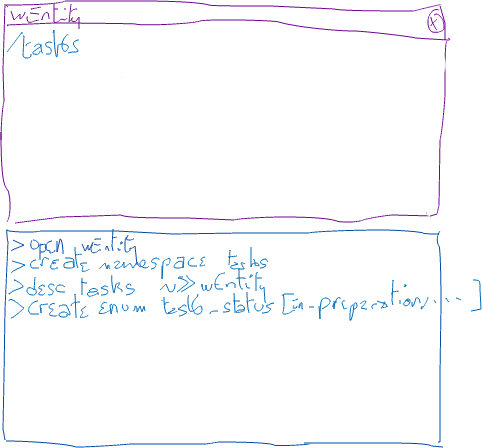 wEntity (x)
/tasks
> open wEntity
> create namespace tasks
> desc tasks v>> wEntity
> create enum task_status [in-preparation, ... ]